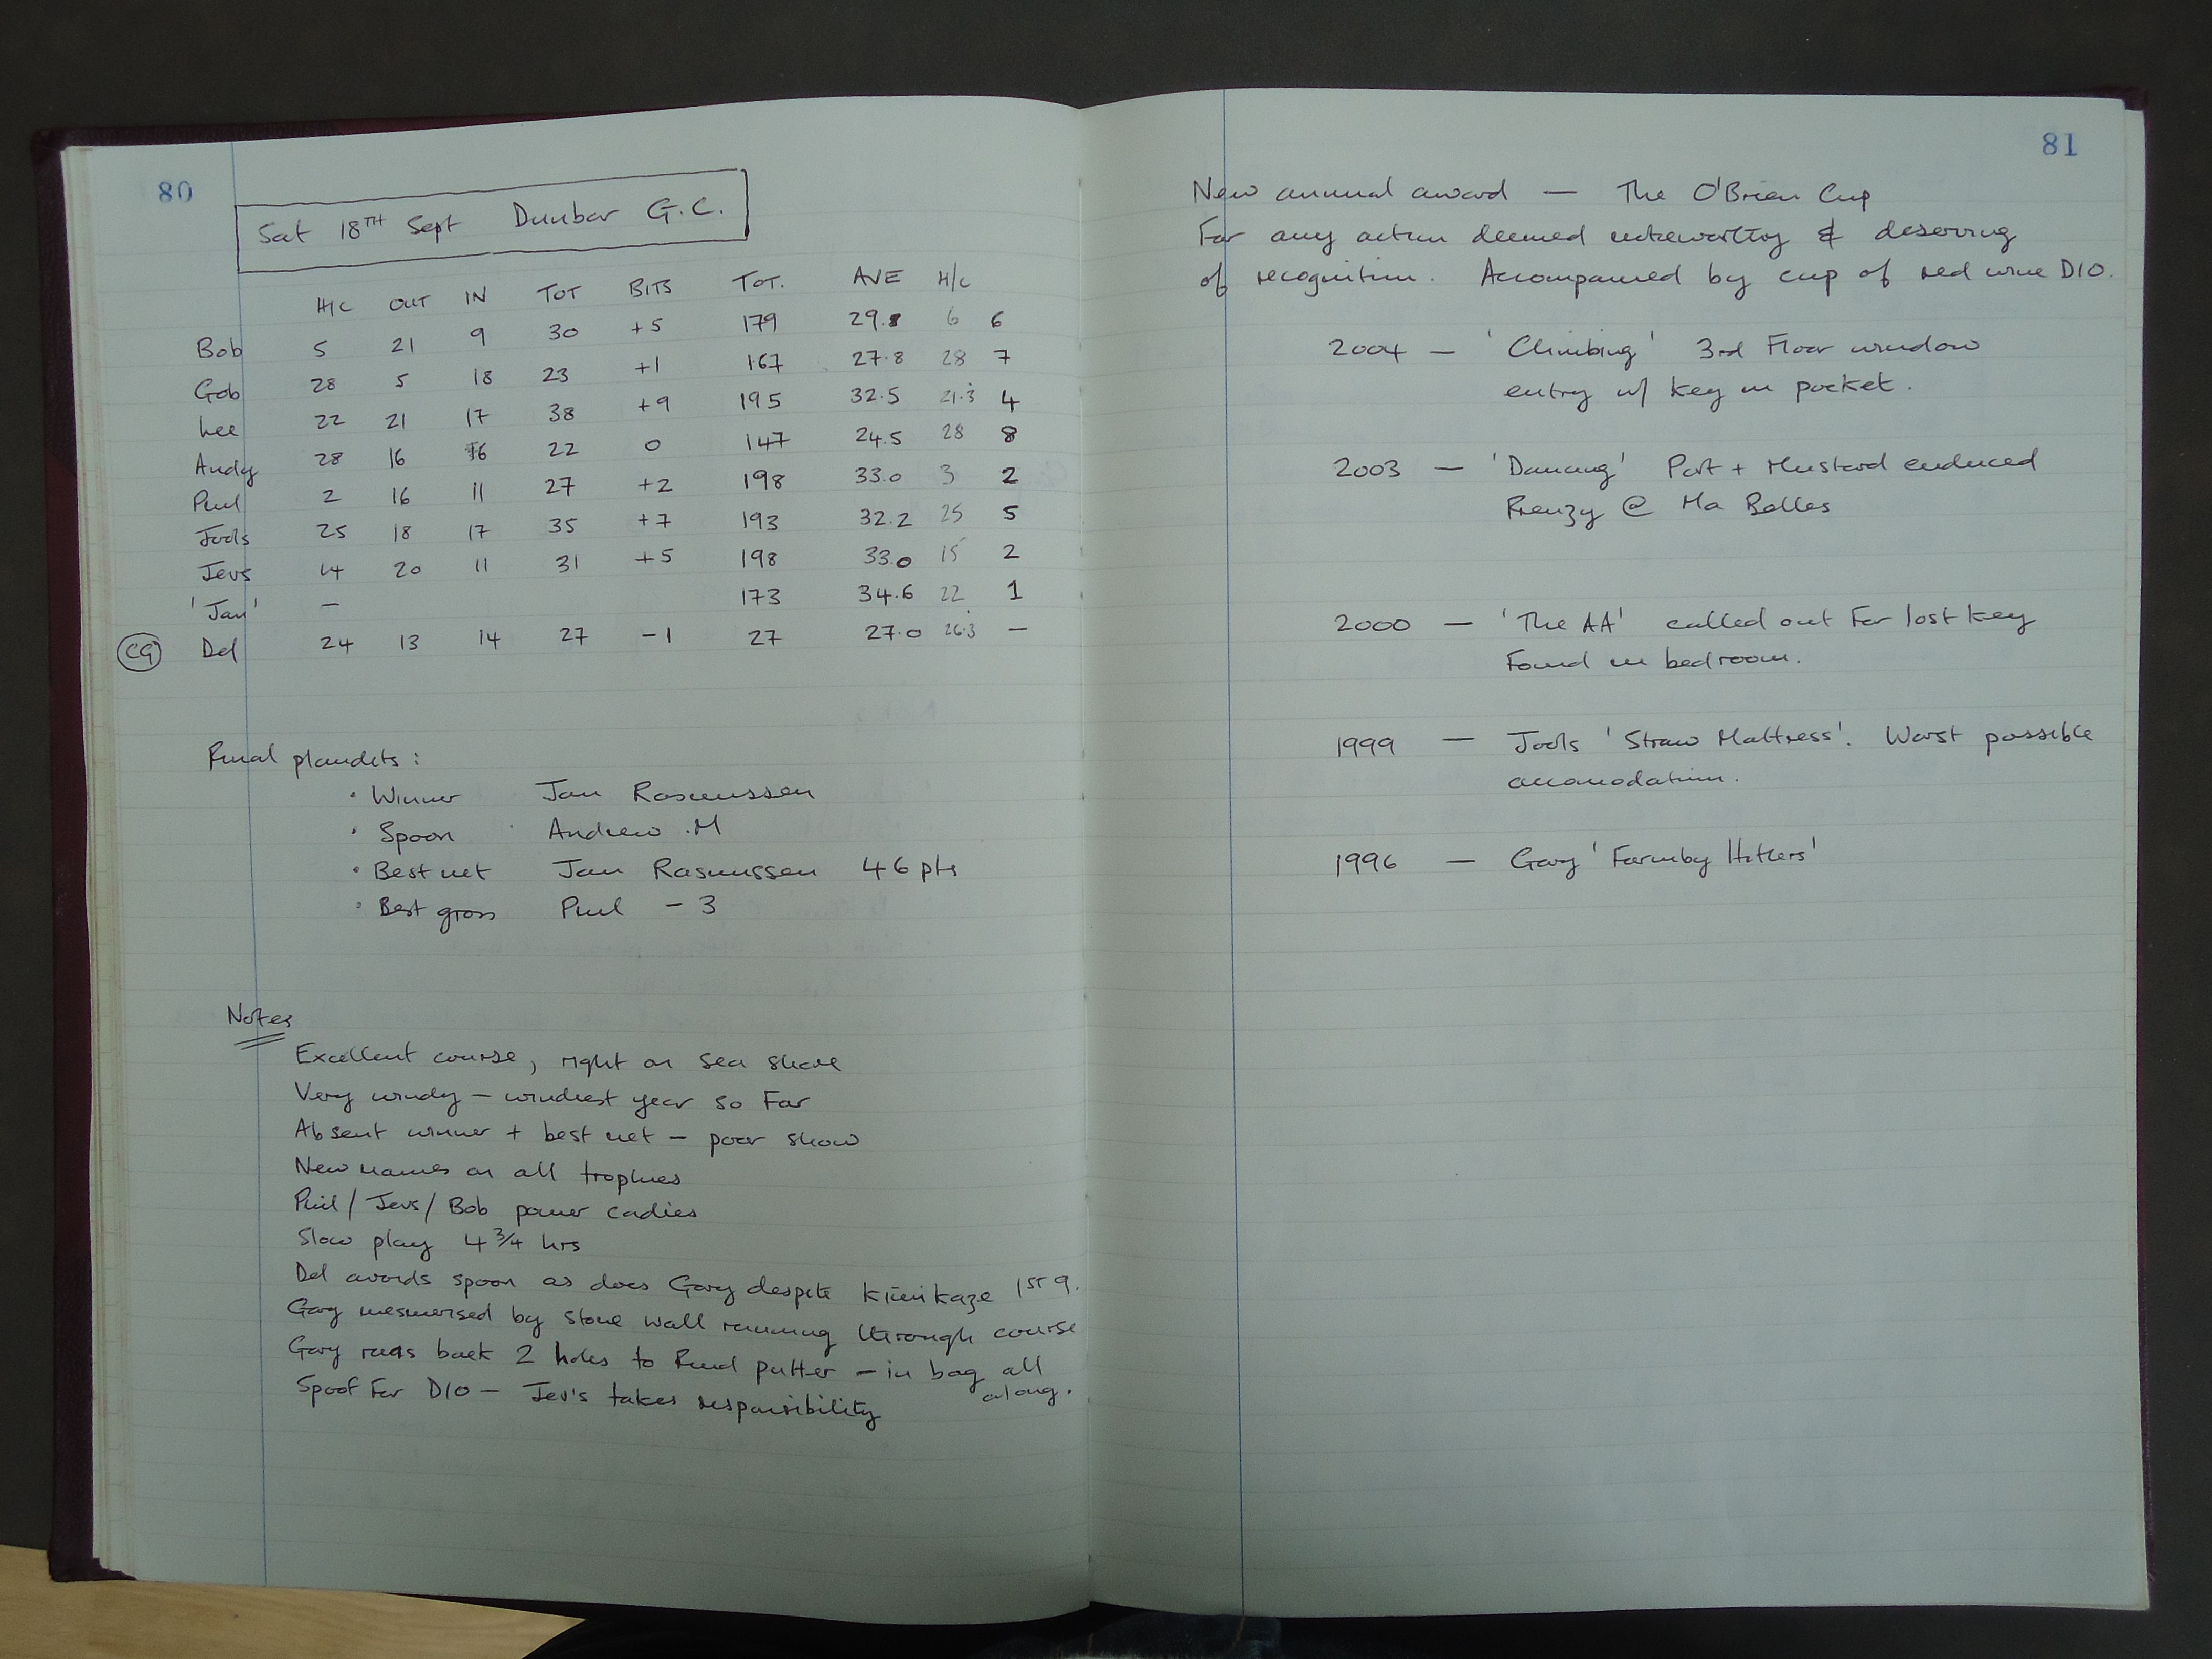 80
Sat 18TH Sept Dunbar G.C.
H/C OUT IN TOT BITS TOT. AVE H/C
Bob 5 21 9 30 +5 179 29.8 6 6
Gob 28 5 18 23 +1 167 27.8 28 7
Lee 22 21 17 38 +9 195 32.5 21.3 4
Andy 28 16 6 22 0 147 24.5 28 8
Phil 2 16 11 27 +2 198 33.0 3 2
Jools 25 18 17 35 +7 193 32.2 25 5
Jevs 14 20 11 31 +5 198 33.0 15 2
'Jan' — 173 34.6 22 1
CG Del 24 13 14 27 -1 27 27.0 26.3 —
Final plaudits :
• Winner Jan Rasmussen
• Spoon Andrew .M
• Best net Jan Rasmussen 46 pts
• Best gross Phil - 3
Notes
Excellent course, right on sea shore
Very windy - windiest year so far
Absent winner + best net - poor show
New names on all trophies
Phil / Jevs / Bob power cadies
Slow play 4 3/4 hrs
Del avoids spoon as does Gary despite kimikaze 1ST 9.
Gary mesmerised by stone wall running through course
Gary runs back 2 holes to find putter - in bag all
along.
Spoof for D10 - Jev's takes responsibility
81
New annual award — The O'Brien Cup
For any action deemed noteworthy & deserving
of recognition. Accompanied by cup of red wine D10.
2004 — 'Climbing' 3rd Floor window
entry w/ key in pocket.
2003 — 'Dancing' Port + Mustard enduced
Frenzy @ Ma Belles
2000 — 'The AA' called out for lost key
found in bedroom.
1999 — Jools 'Straw Mattress'. Worst possible
accomodation.
1996 — Gary 'Formby Hitlers'